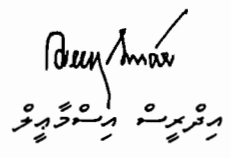 އިދްރީސް އިސްމާޢީލް